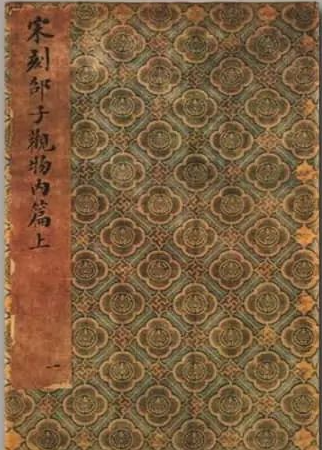 宋刻邵子觀物內篇上
一